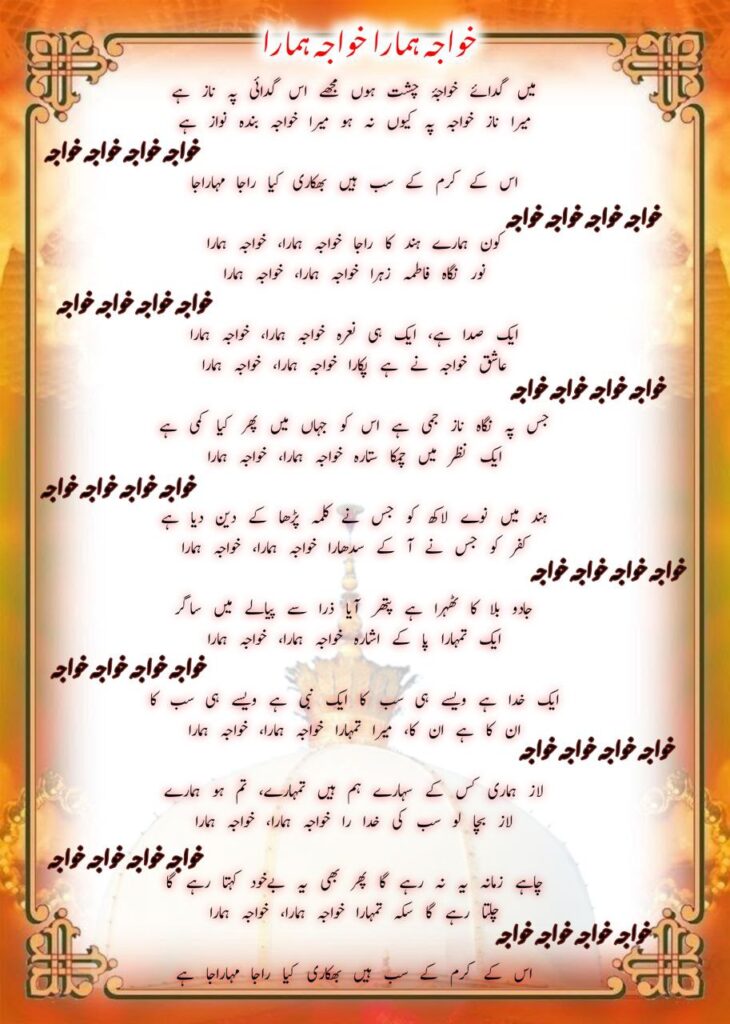 خواجہ ہمارا خواجہ ہمارا
میں گدائے خواجۂ چشت ہوں مجھے اس گدائی پہ ناز ہے
میرا ناز خواجہ پہ کیوں نہ ہو میرا خواجہ بندہ نواز ہے
خواجہ خواجہ خواجہ خواجہ
اس کے کرم کے سب ہیں بھکاری کیا راجا مہاراجا
خواجہ خواجہ خواجہ خواجہ
کون ہمارے ہند کا راجا خواجہ ہمارا، خواجہ ہمارا
نور نگاہ فاطمہ زہرا خواجہ ہمارا، خواجہ ہمارا
خواجہ خواجہ خواجہ خواجہ
ایک صدا ہے، ایک ہی نعرہ خواجہ ہمارا، خواجہ ہمارا
عاشق خواجہ نے ہے پکارا خواجہ ہمارا، خواجہ ہمارا
خواجہ خواجہ خواجہ خواجہ
جس پہ نگاہ ناز جمی ہے اس کو جہاں میں پھر کیا کمی ہے
ایک نظر میں چمکا ستارہ خواجہ ہمارا، خواجہ ہمارا
خواجہ خواجہ خواجہ خواجہ
ہند میں نوے لاکھ کو جس نے کلمہ پڑھا کے دین دیا ہے
کفر کو جس نے آ کے سدھارا خواجہ ہمارا، خواجہ ہمارا
خواجہ خواجہ خواجہ خواجہ
جادو بلا کا ٹھہرا ہے پتھر آیا ذرا سے پیالے میں ساگر
ایک تمہارا پا کے اشارہ خواجہ ہمارا، خواجہ ہمارا
خواجہ خواجہ خواجہ خواجہ
ایک خدا ہے ویسے ہی سب کا ایک نبی ہے ویسے ہی سب کا
ان کا ہے ان کا، میرا تمہارا خواجہ ہمارا، خواجہ ہمارا
خواجہ خواجہ خواجہ خواجہ
لاز ہماری کس کے سہارے ہم ہیں تمہارے، تم ہو ہمارے
لاز بچا لو سب کی خدا را خواجہ ہمارا، خواجہ ہمارا
خواجہ خواجہ خواجہ خواجہ
چاہے زمانہ یہ نہ رہے گا پھر بھی یہ بےخود کہتا رہے گا
چلتا رہے گا سکہ تمہارا خواجہ ہمارا، خواجہ ہمارا
خواجہ خواجہ خواجہ خواجہ
اس کے کرم کے سب ہیں بھکاری کیا راجا مہاراجا ہے